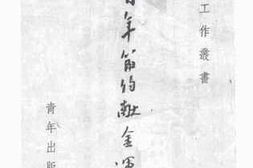 工作叢書
青年節約獻金運
青年出版